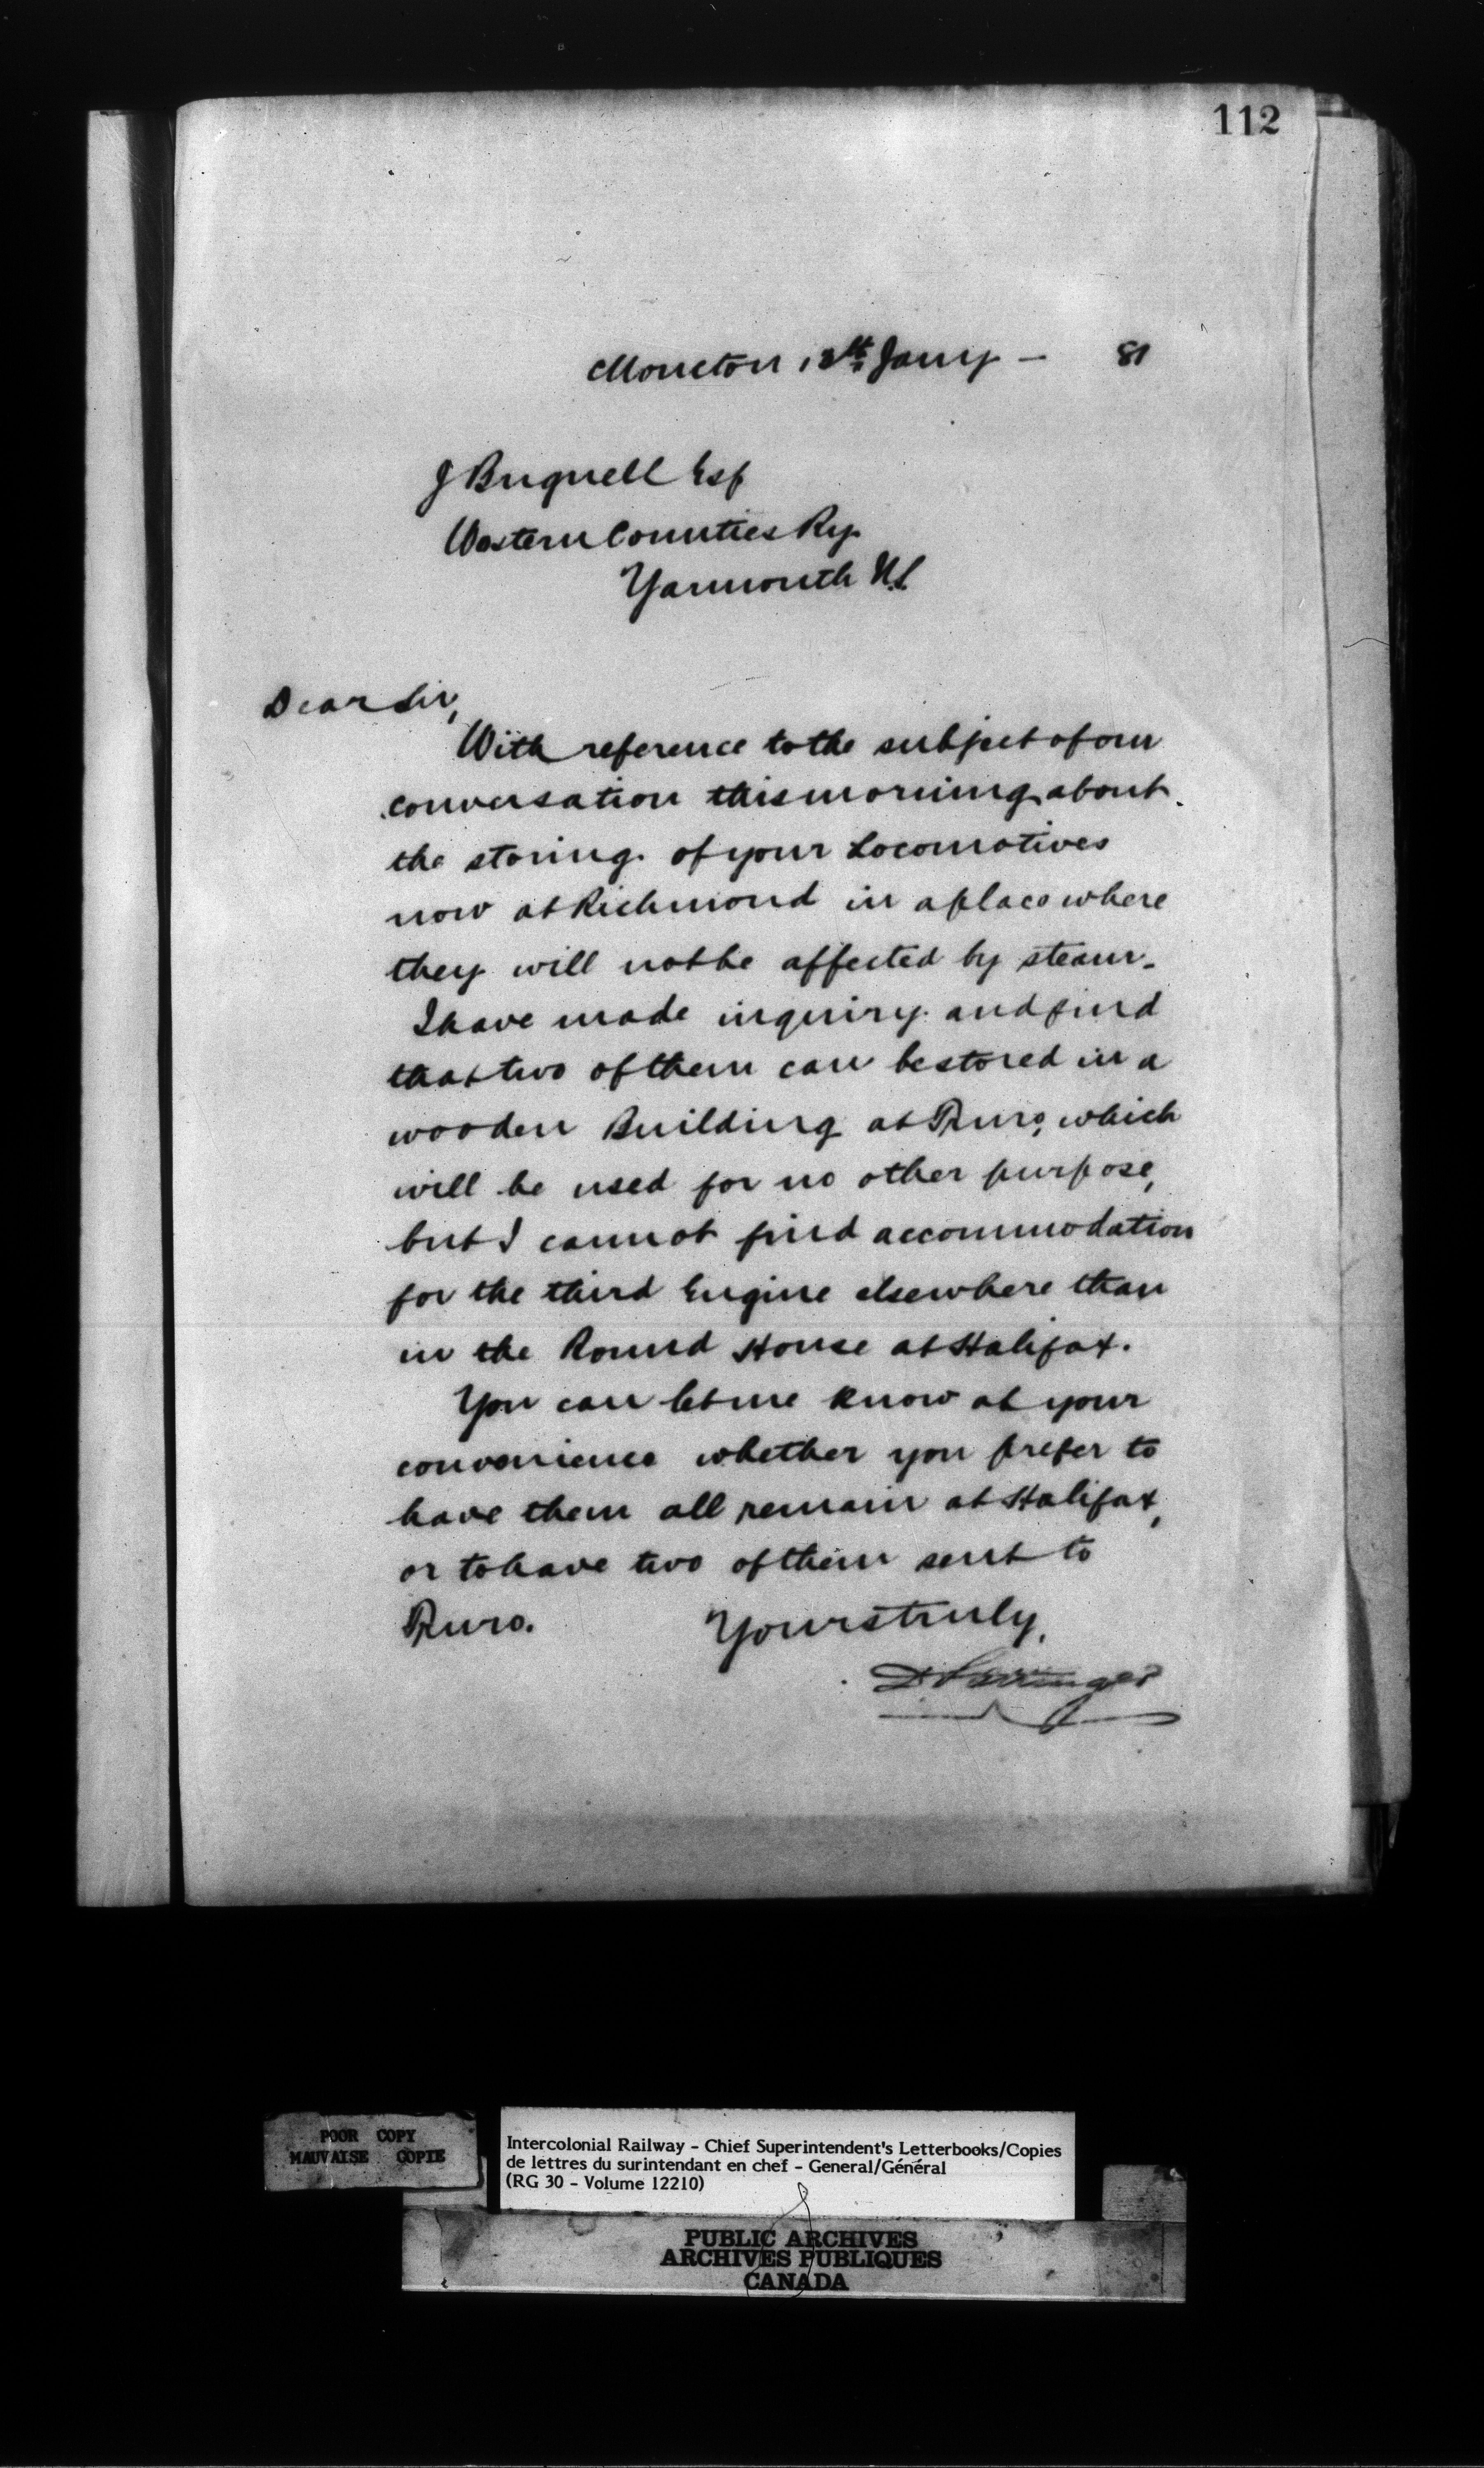 112
Moncton 13th Jany - 81
J Brignell Esq
Western Counties Ry.
Yarmouth N.S.
Dear Sir,
With reference to the subject of our
conversation this morning about
the storing of your Locomotives
now at Richmond in a place where
they will not be affected by steam.
I have made inquiry and find
that two of them can be stored in a
wooden Building at Truro, which
will be used for no other purpose,
but I cannot find accommodation
for the third Engine elsewhere than
in the Round House at Halifax.
You can let me know at your
convenience whether you prefer to
have them all remain at Halifax,
or to have two of them sent to
Truro. Yours truly,
D Pottinger
POOR COPY
MAUVAISE COPIE
Intercolonial Railway - Chief Superintendent's Letterbooks/Copies
de lettres du surintendant en chef - General/Général
(RG 30 - Volume 12210)
PUBLIC ARCHIVES
ARCHIVES PUBLIQUES
CANADA